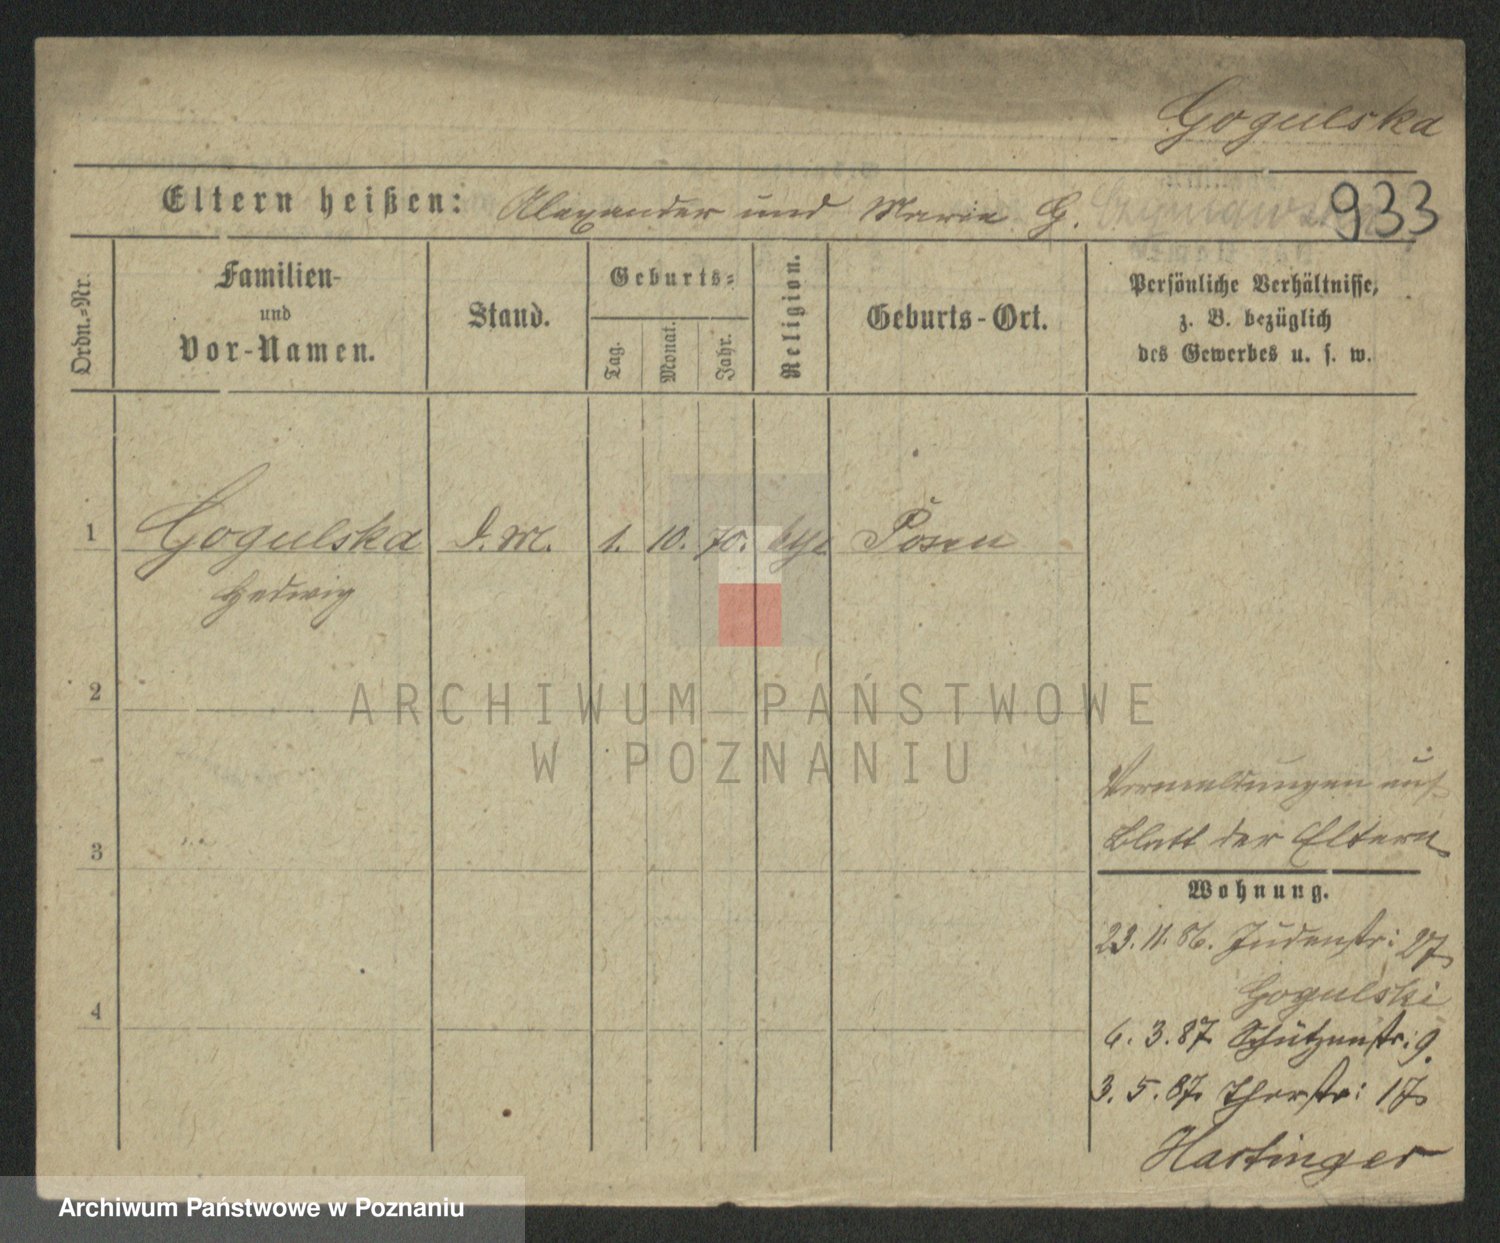 Gogulska
Eltern heißen: Alexander und Marie G.
933
Ordn.-Nr.
Familien-
und
Vor-Namen.
Stand.
Geburts-
Tag.
Monat.
Jahr.
Religion.
Geburts-Ort.
Persönliche Verhältnisse,
z. B. bezüglich
des Gewerbes u. s. w.
1 Gogulska D. M. 1. 10. 70. Posen
Hedwig
2
ARCHIWUM PAŃSTWOWE
W POZNANIU
Vermeldungen auf
3 Blatt der Eltern
Wohnung.
23. 11. 86. Judenstr: 27
Gogulski
4
6. 3. 87 Schützenstr: 9.
3. 5. 87 17
Hartinger
Archiwum Państwowe w Poznaniu